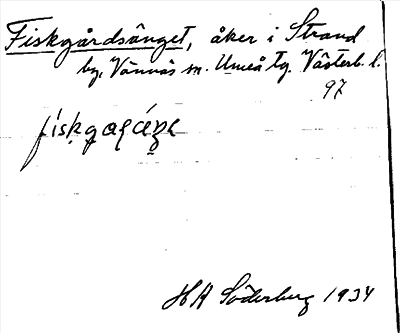 Fiskgårdsänget, åker i Strand
by, Vännäs sn. Umeå tg. Västerb. l.
97
HA Söderberg 1934